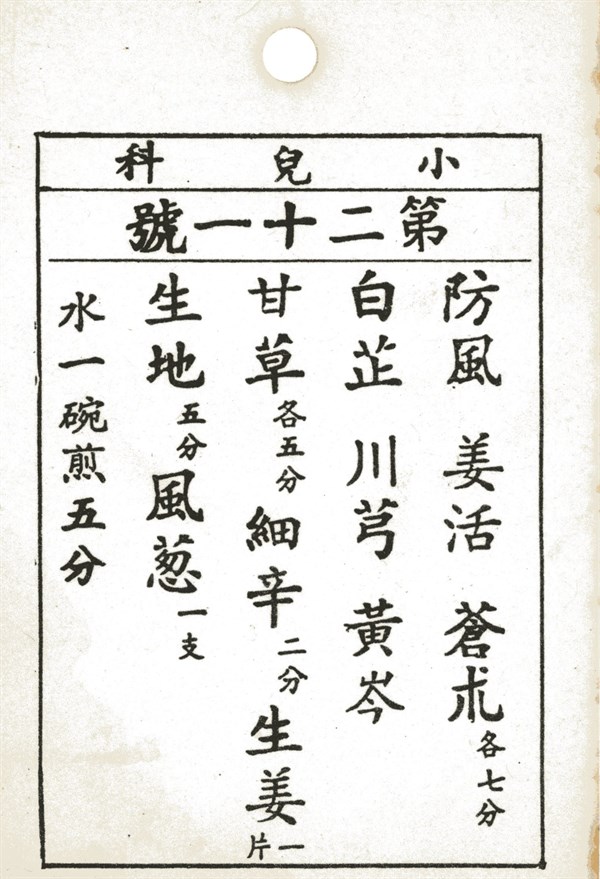 小兒科
第二十一號
防風 姜活 蒼朮各七分
白芷 川芎 黃岑
甘草各五分 細辛二分 生姜一片
生地五分 風葱一支
水一碗煎五分